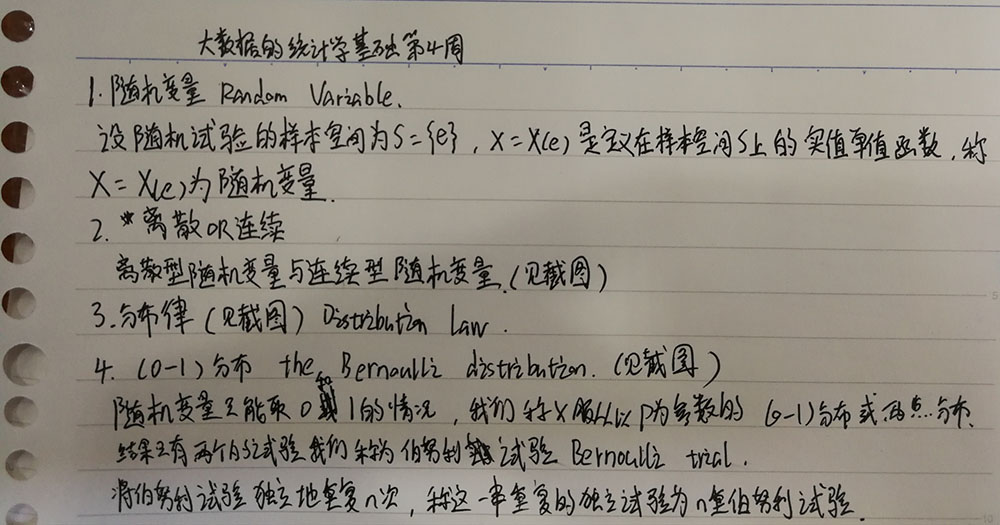 大数据的统计学基础第4周
1. 随机变量 Random Variable.
设随机试验的样本空间为S={e}, X=X(e)是定义在样本空间S上的实值单值函数, 称
X=X(e)为随机变量.
2. *离散OR连续
离散型随机变量与连续型随机变量.(见截图)
3. 分布律 (见截图) Distribution Law.
4. (0-1)分布 the Bernoulli distribution. (见截图)
随机变量只能取0和1的情况, 我们称X服从以p为参数的 (0-1)分布或两点分布.
结果只有两个的试验我们称为伯努利试验 Bernoulli trial.
将伯努利试验独立地重复n次, 称这一串重复的独立试验为n重伯努利试验.